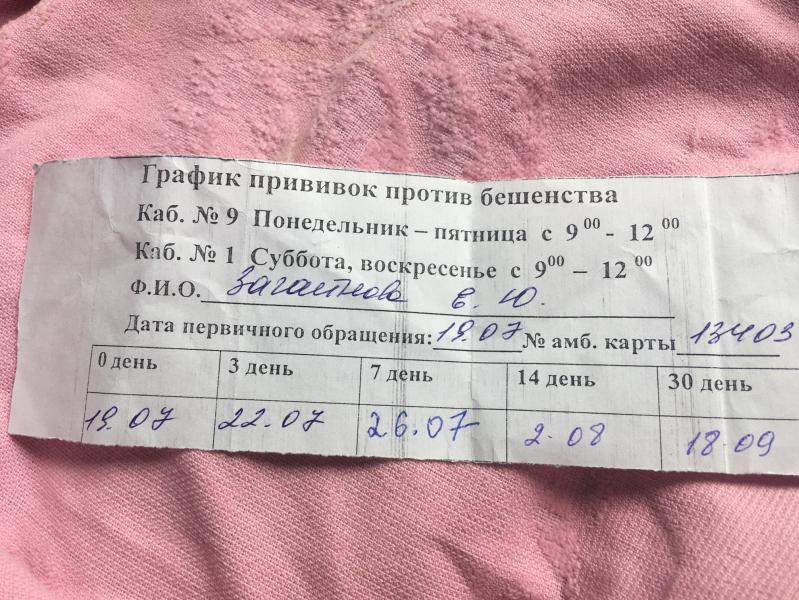 График прививок против бешенства
Каб. № 9 Понедельник – пятница с 9⁰⁰ - 12⁰⁰
Каб. № 1 Суббота, воскресенье с 9⁰⁰ – 12⁰⁰
Ф.И.О. Е. Ю.
Дата первичного обращения: 19.07 № амб. карты 13403
0 день 3 день 7 день 14 день 30 день
19.07 22.07 26.07 2.08 18.09